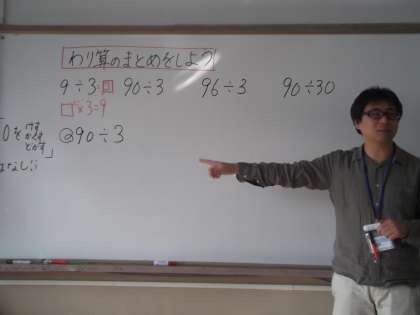 わり算のまとめをしよう
9÷3=□ 90÷3 96÷3 90÷30
□×3=9
@90÷3
0を
けす
かくす
とかす
」
はなし!!